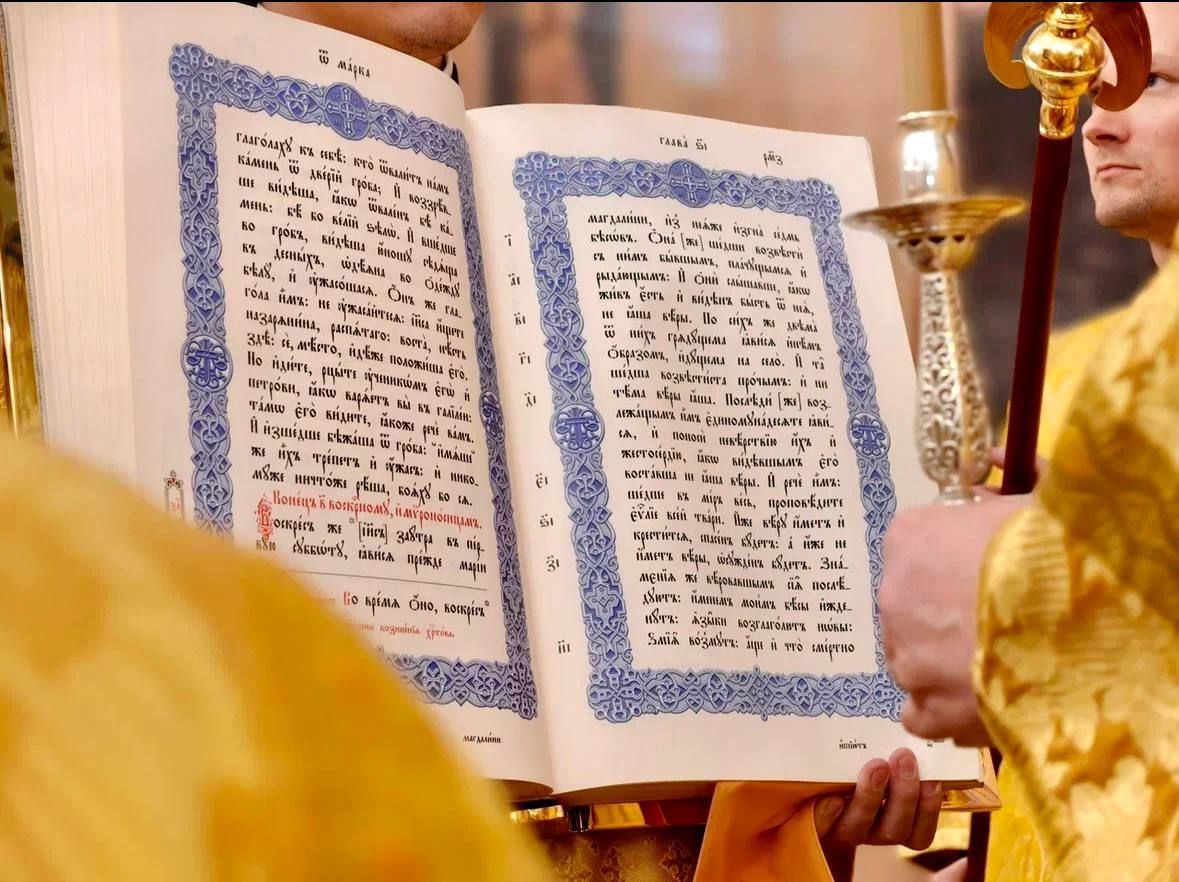 Ѿ ма́рка
глаго́лахꙋ къ себѣ̀: кто̀ ѿвали́тъ на́мъ
ка́мень ѿ две́рїй гро́ба; И҆ воззрѣ́в-
ше ви́дѣша, ꙗ҆́кѡ ѿвале́нъ бѣ̀ ка́-
мень: бѣ́ бо ве́лїй ѕѣлѡ̀. И҆ вше́дше
во гро́бъ, ви́дѣша ю҆́ношꙋ сѣдѧ́ща
въ десны́хъ, ѡ҆дѣ́ѧна во ѻ҆де́ждꙋ
бѣ́лꙋ, и҆ ᲂу҆жасо́шасѧ. Ѻ҆́нъ же гла-
го́ла и҆̀мъ: не ᲂу҆жаса́йтесѧ: і҆и҃са и҆́щете
назарѧни́на, распѧ́таго: воста̀, нѣ́сть
здѣ̀: сѐ, мѣ́сто, и҆дѣ́же положи́ша є҆го̀.
Но и҆ди́те, рцы́те ᲂу҆ченикѡ́мъ є҆гѡ̀ и҆
петро́ви, ꙗ҆́кѡ варѧ́етъ вы̀ въ галїле́и:
та́мѡ є҆го̀ ви́дите, ꙗ҆́коже речѐ ва́мъ.
И҆ и҆зше́дше бѣжа́ша ѿ гро́ба: и҆мѧ́ше
же и҆̀хъ тре́петъ и҆ ᲂу҆́жасъ: и҆ нико-
мꙋ́же ничто́же рѣ́ша, боѧ́хꙋ бо сѧ.
Коне́цъ в҃ воскр҇номꙋ, и҆ мѷроно́сицамъ.
Воскре́съ же *[і҆и҃съ] заꙋ́тра въ пе́р-
вꙋю сꙋббѡ́тꙋ, ꙗ҆ви́сѧ пре́жде марі́и
Во вре́мѧ ѻ҆́но, воскре́съ*
хрⷭ҇то́ва.
магдали́ни
глава̀ ѕ҃і
рм҃з
магдали́ни, и҆з̾ неѧ́же и҆згна̀ се́дмь
бѣсѡ́въ. Ѻ҆на́ [же] ше́дши возвѣстѝ
съ ни́мъ бы́вшымъ, пла́чꙋщымсѧ и҆
рыда́ющымъ: И҆ ѻ҆нѝ слы́шавше, ꙗ҆́кѡ
жи́въ є҆́сть и҆ ви́дѣнъ бы́сть ѿ неѧ̀,
не ꙗ҆́ша вѣ́ры. По си́хъ же двѣма̀
ѿ ни́хъ грѧдꙋ́щема ꙗ҆ви́сѧ и҆нѣ́мъ
ѻ҆́бразомъ, и҆дꙋ́щема на село̀. И҆ та̑
шє́дша возвѣсти́ста про́чымъ: и҆ ни
тѣ́ма вѣ́ры ꙗ҆́ша. Послѣди́ [же] воз-
лежа́щымъ и҆̀мъ є҆диномꙋна́десѧте ꙗ҆ви́-
сѧ, и҆ поносѝ невѣ́рствїю и҆́хъ и҆
жестосе́рдїю, ꙗ҆́кѡ ви́дѣвшымъ є҆го̀
воста́вша не ꙗ҆́ша вѣ́ры. И҆ речѐ и҆̀мъ:
ше́дше въ мі́ръ ве́сь, проповѣ́дите
є҆ѵⷢ҇лїе все́й тва́ри. И҆́же вѣ́рꙋ и҆́метъ и҆
крести́тсѧ, спасе́нъ бꙋ́детъ: а҆ и҆́же не
и҆́метъ вѣ́ры, ѡ҆сꙋжде́нъ бꙋ́детъ. Зна́-
мєнїѧ же вѣ́ровавшымъ сїѧ̑ послѣ́-
дꙋютъ: и҆́менемъ мои́мъ бѣ́сы и҆жде-
нꙋ́тъ: ꙗ҆зы̑ки возглаго́лютъ нѡ́вы:
Ѕмїѧ̑ во́змꙋтъ: а҆́ще и҆ что̀ сме́ртно
і҃
а҃і
в҃і
г҃і
д҃і
є҃і
ѕ҃і
з҃і
и҃і
и҆спїю́тъ